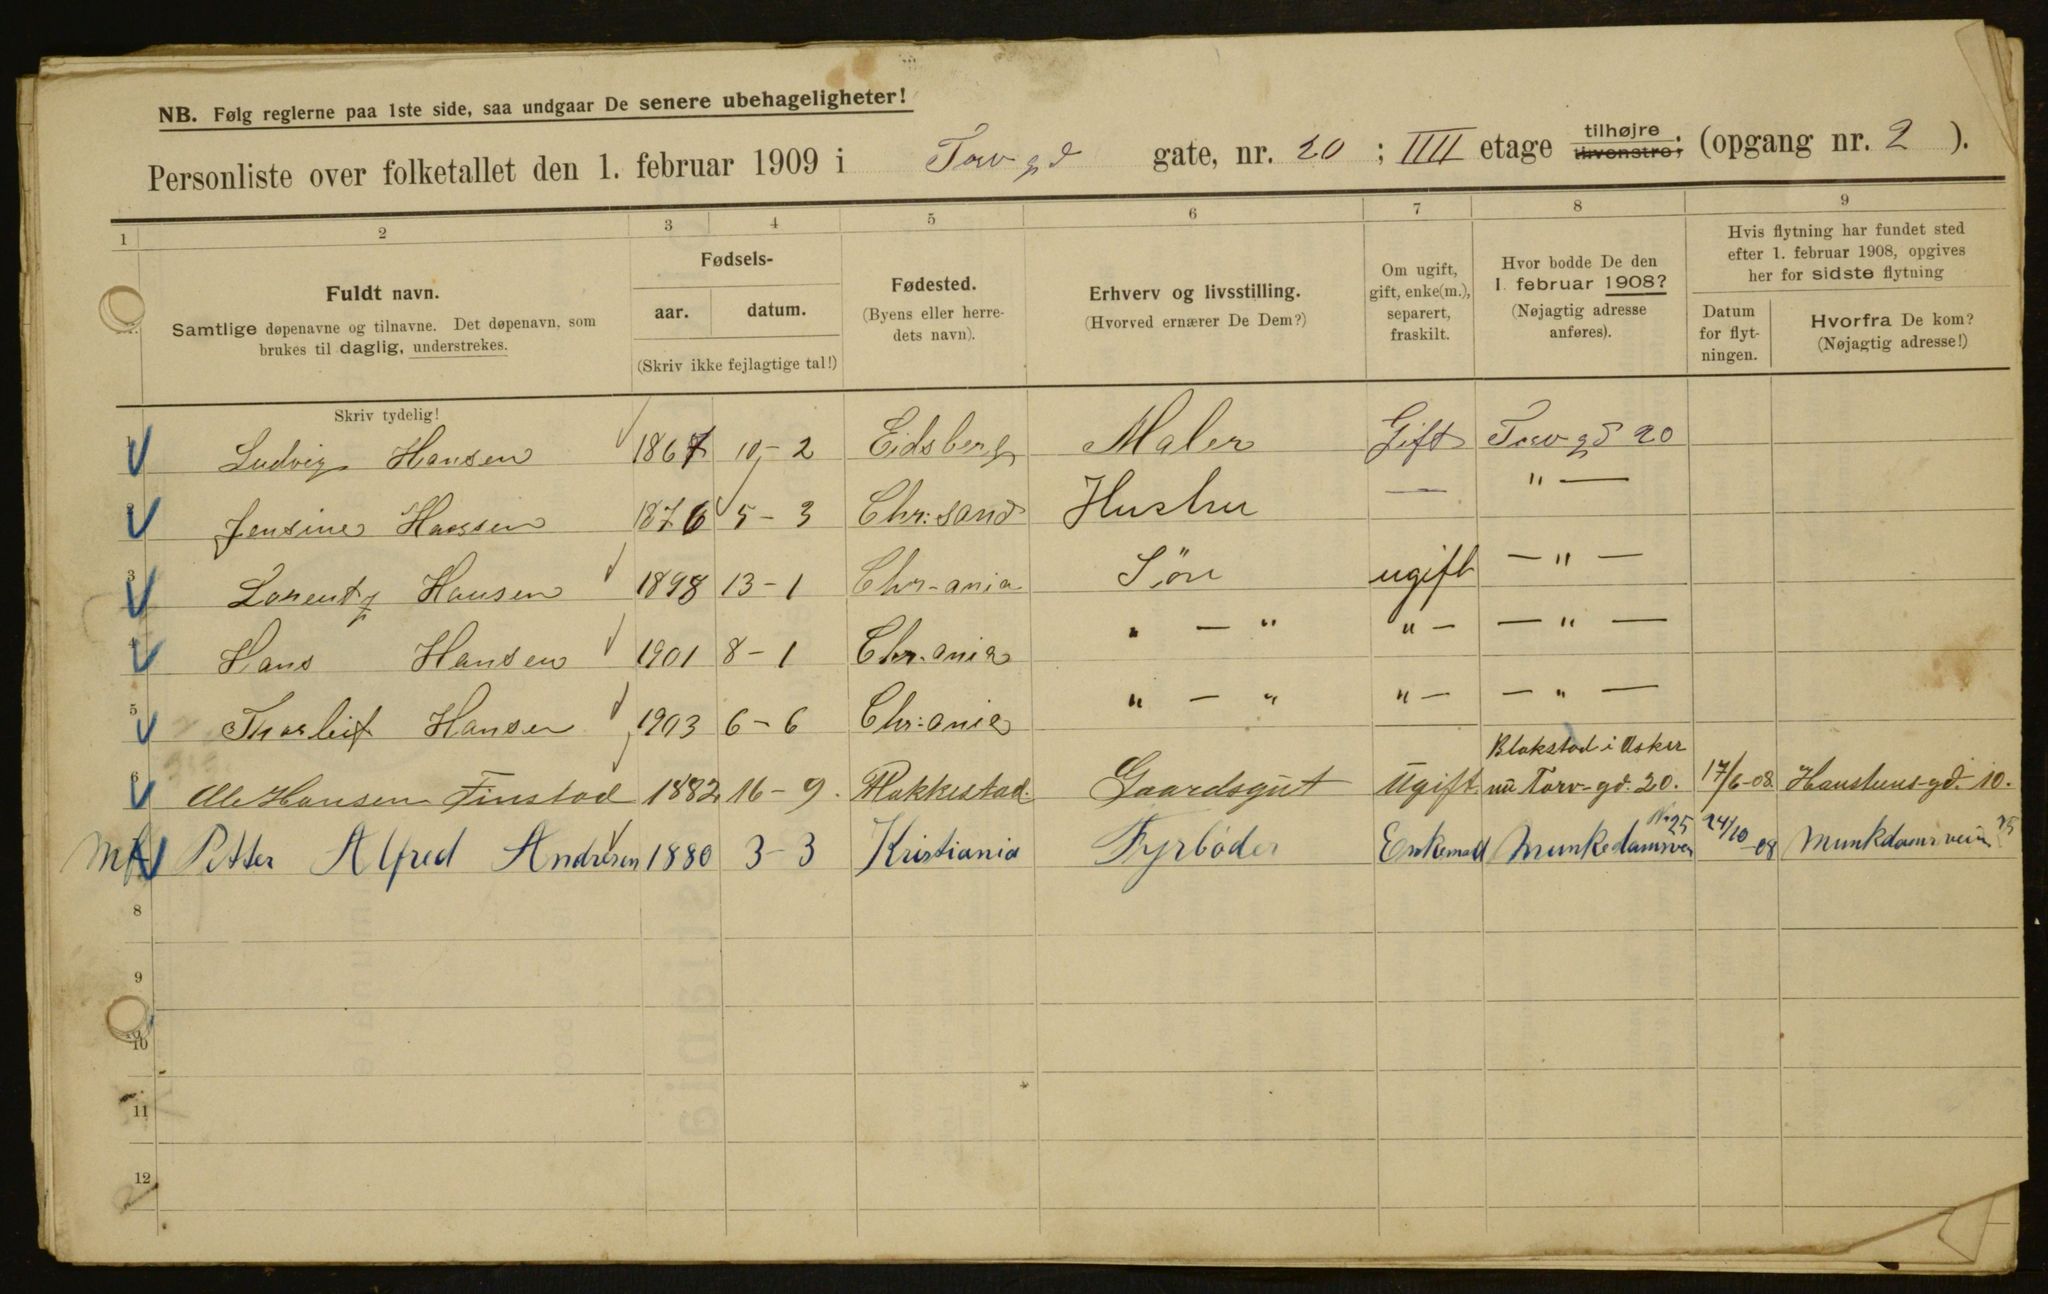 NB. Følg reglerne paa 1ste side, saa undgaar De senere ubehageligheter!
Personliste over folketallet den 1. februar 1909 i Torvgd gate, nr. 20 ; IIII etage tilhøjre, tilvenstre, (opgang nr. 2 ).
1 2 3 4 5 6 7 8 9
Fuldt navn.
Samtlige døpenavne og tilnavne. Det døpenavn, som
brukes til daglig, understrekes.
Skriv tydelig!
Fødsels-
aar. datum.
(Skriv ikke fejlagtige tal!)
Fødested.
(Byens eller herre-
dets navn).
Erhverv og livsstilling.
(Hvorved ernærer De Dem?)
Om ugift,
gift, enke(m.),
separert,
fraskilt.
Hvor bodde De den
1. februar 1908?
(Nøjagtig adresse
anføres).
Hvis flytning har fundet sted
efter 1. februar 1908, opgives
her for sidste flytning
Datum
for flyt-
ningen.
Hvorfra De kom?
(Nøjagtig adresse!)
1 Ludvig Hansen 1867 10-2 Eidsberg Maler Gift Torvgd 20
2 Jensine Hansen 1876 5-3 Chr:sand Hustru — " —
3 Lorentz Hansen 1898 13-1 Chr-ania Søn ugift — " —
4 Hans Hansen 1901 8-1 Chr.ania " — " " — — " —
5 Thorleif Hansen 1903 6-6 Chr:ania " — " " — — " —
6 Ole Hansen Finstad 1882 16-9. Rakkestad. Gaardsgut Ugift Blakstad i Asker nu Torv-gd. 20. 17/6-08 Haustuns-gd. 10.
Petter Alfred Andresen 1880 3-3 Kristiania Fyrbøder Enkemand Munkedamsvei No 25 24/10-08 Munkdamsveien 25
8
9
10
11
12